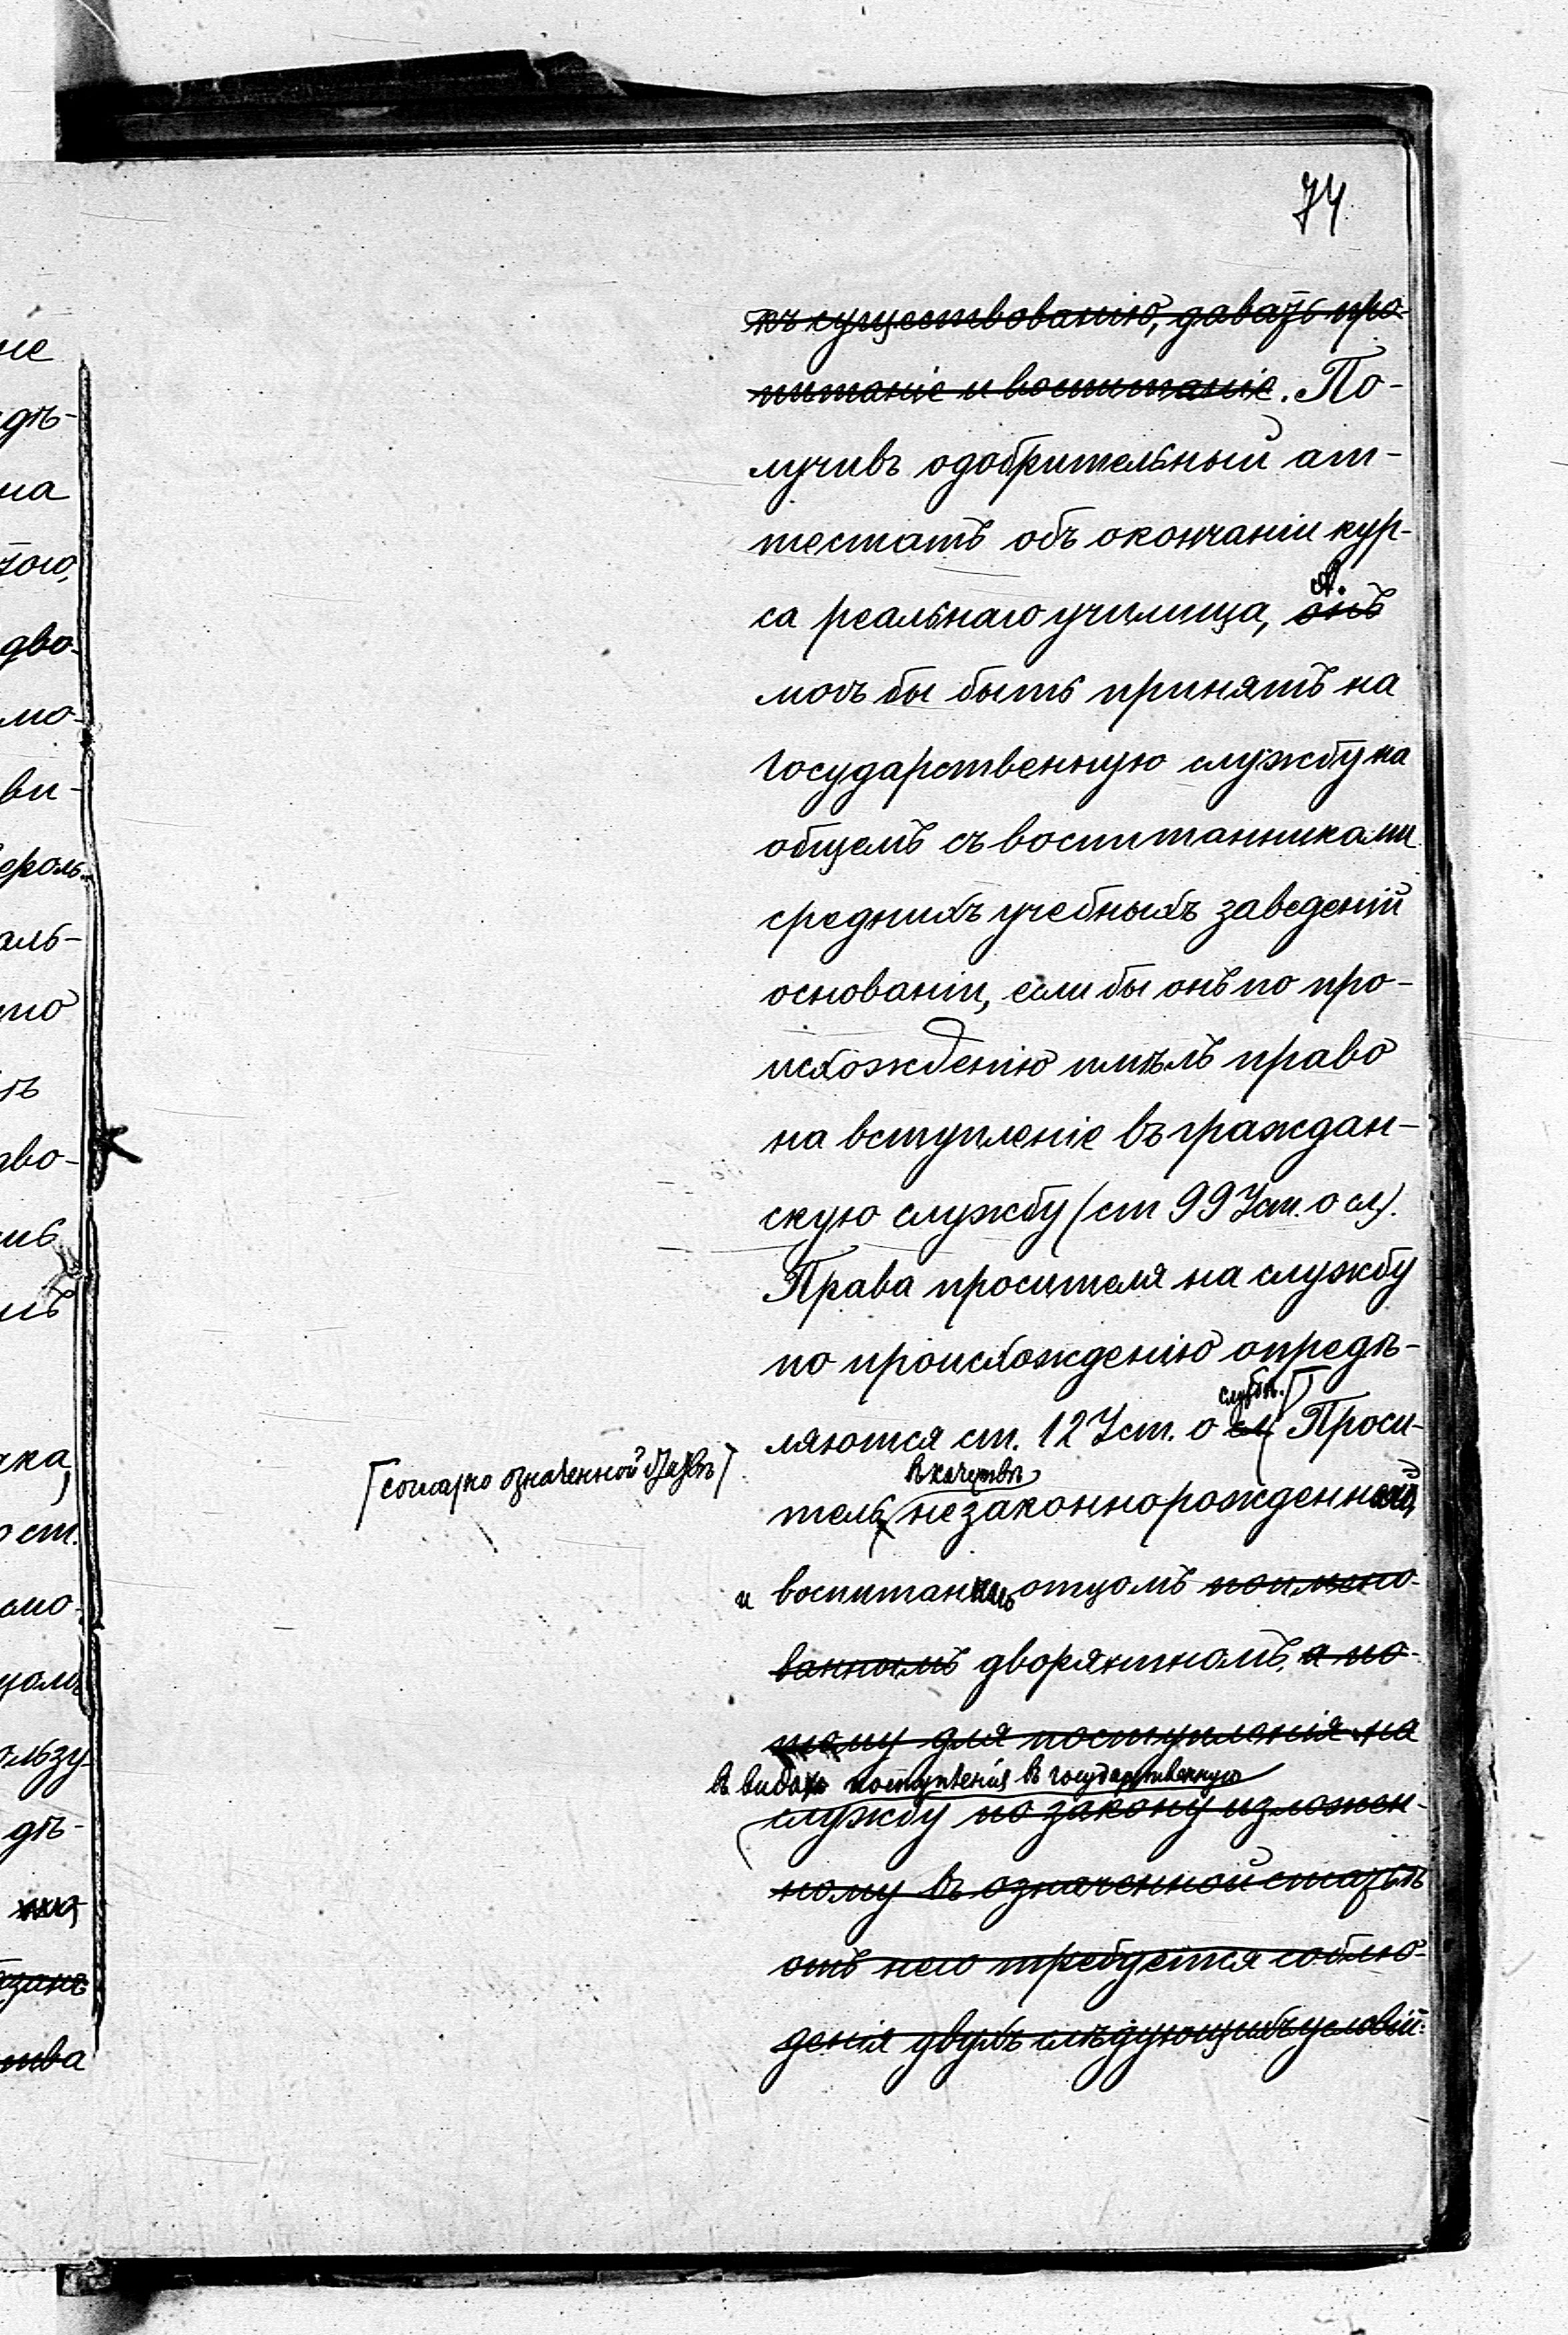 74
къ существованію, давать про-
питаніе и воспитаніе. По-
лучивъ одобрительный ат-
тестатъ объ окончаніи кур-
А.
са реальнаго училища, онъ
могъ бы быть принятъ на
государственную службу на
общемъ съ воспитанниками
среднихъ учебныхъ заведеній
основаніи, если бы онъ по про-
исхожденію имѣлъ право
на вступленіе въ граждан-
скую службу (ст 99 Уст. о сл).
Права просителя на службу
по происхожденію опредѣ-
служб.
ляются ст. 12 Уст. о сл. Проси-
согласно означенной статьѣ
въ качествѣ
тель незаконнорожденнаго,
и воспитанъ отцомъ поимено-
ваннымъ дворяниномъ, а по-
тому для поступленія на
въ видахъ поступленія въ государственную
службу по закону изложен-
ному въ означенной статьѣ
отъ него требуется соблю-
денія двухъ слѣдующихъ условій:
не
дѣ-
на
тою,
дво-
мо-
ви-
ероль-
аль-
дво-
ст.
дѣ-